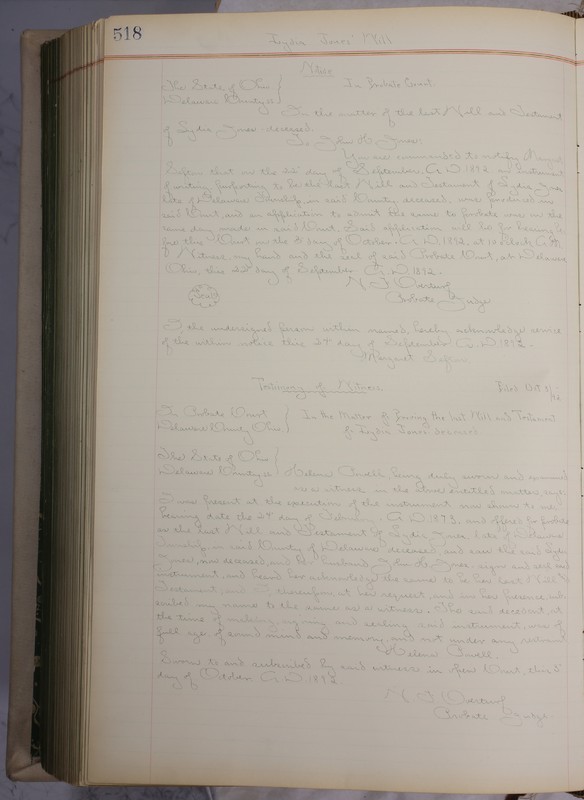 518
Lydia Jones' Will
Notice
The State of Ohio
Delaware County ss
In Probate Court
In the matter of the last Will and Testament
of Lydia Jones deceased.
To John H. Jones:
You are commanded to notify Margaret
that on the 22d day of September A.D. 1892 an Instrument
of writing purporting to be the last Will and Testament of Lydia Jones
late of Delaware Township, in said County, deceased, was produced in
said Court, and an application to admit the same to probate was on the
same day made in said Court. Said application will be for hearing be-
fore this Court on the 5 day of October A.D. 1892, at 10 o'clock A.M.
Witness, my hand and the seal of said Probate Court, at Delaware
Ohio, this 22d day of September A.D. 1892.
Seal
Probate Judge
I the undersigned person within named, hereby acknowledge service
of the within notice this 24 day of September A.D. 1892.
Margaret
Testimony of Witness
Filed Oct 5/92
In Probate Court
Delaware County Ohio
In the Matter of Proving the last Will and Testament
of Lydia Jones deceased
The State of Ohio
Delaware County ss
Helena being duly sworn and examined
as a witness in the above entitled matter, says:
I was present at the execution of the instrument now shown to me
bearing date the 24 day of February A.D. 1873, and offered for probate
as the last Will and Testament of Lydia Jones late of Delaware
Township, in said County of Delaware deceased, and saw the said Lydia
Jones, now deceased, and her husband John H. Jones, sign and seal said
instrument, and heard her acknowledge the same to be her last Will &
Testament, and I thereupon at her request, and in her presence, sub-
scribed my name to the same as a witness. The said decedent, at
the time of making, signing and sealing said instrument, was of
full age, of sound mind and memory, and not under any restraint
Helena
Sworn to and subscribed by said witness in open Court, this 5
day of October A.D. 1892.
Probate Judge